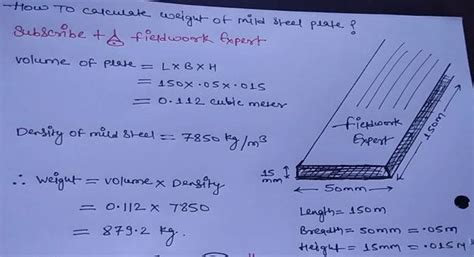 How To calculate weight of mild steel plate?
Subscribe + fieldwork Expert
volume of plate = L x B x H
= 150 x .05 x .015
= 0.112 cubic meter
Density of mild steel = 7850 kg/m³
∴ weight = volume x Density
= 0.112 x 7850
= 879.2 kg.
fieldwork
Expert
150m
15
mm
50mm
Length = 150m
Breadth = 50mm = .05m
Height = 15mm = .015M